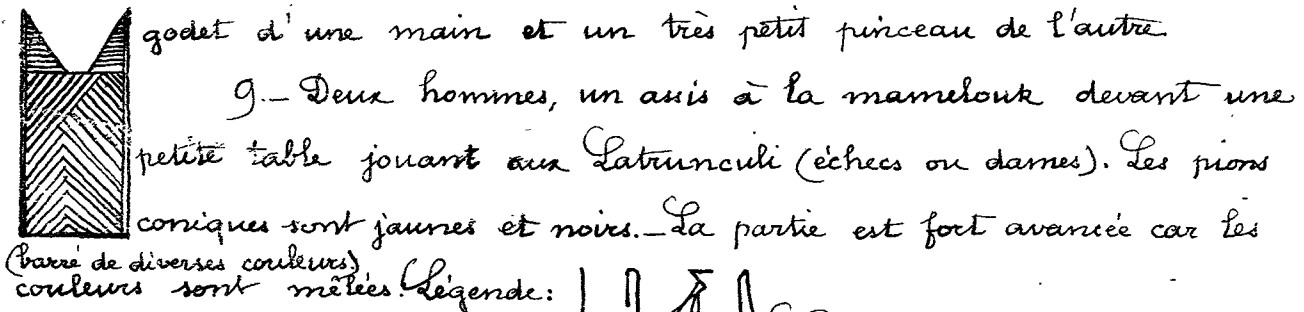 godet d'une main et un très petit pinceau de l'autre
9.- Deux hommes, un assis à la mamelouk devant une
petite table jouant aux Latrunculi (échecs ou dames). Les pions
coniques sont jaunes et noirs.- La partie est fort avancée car les
(barré de diverses couleurs)
couleurs sont mêlées. Légende: